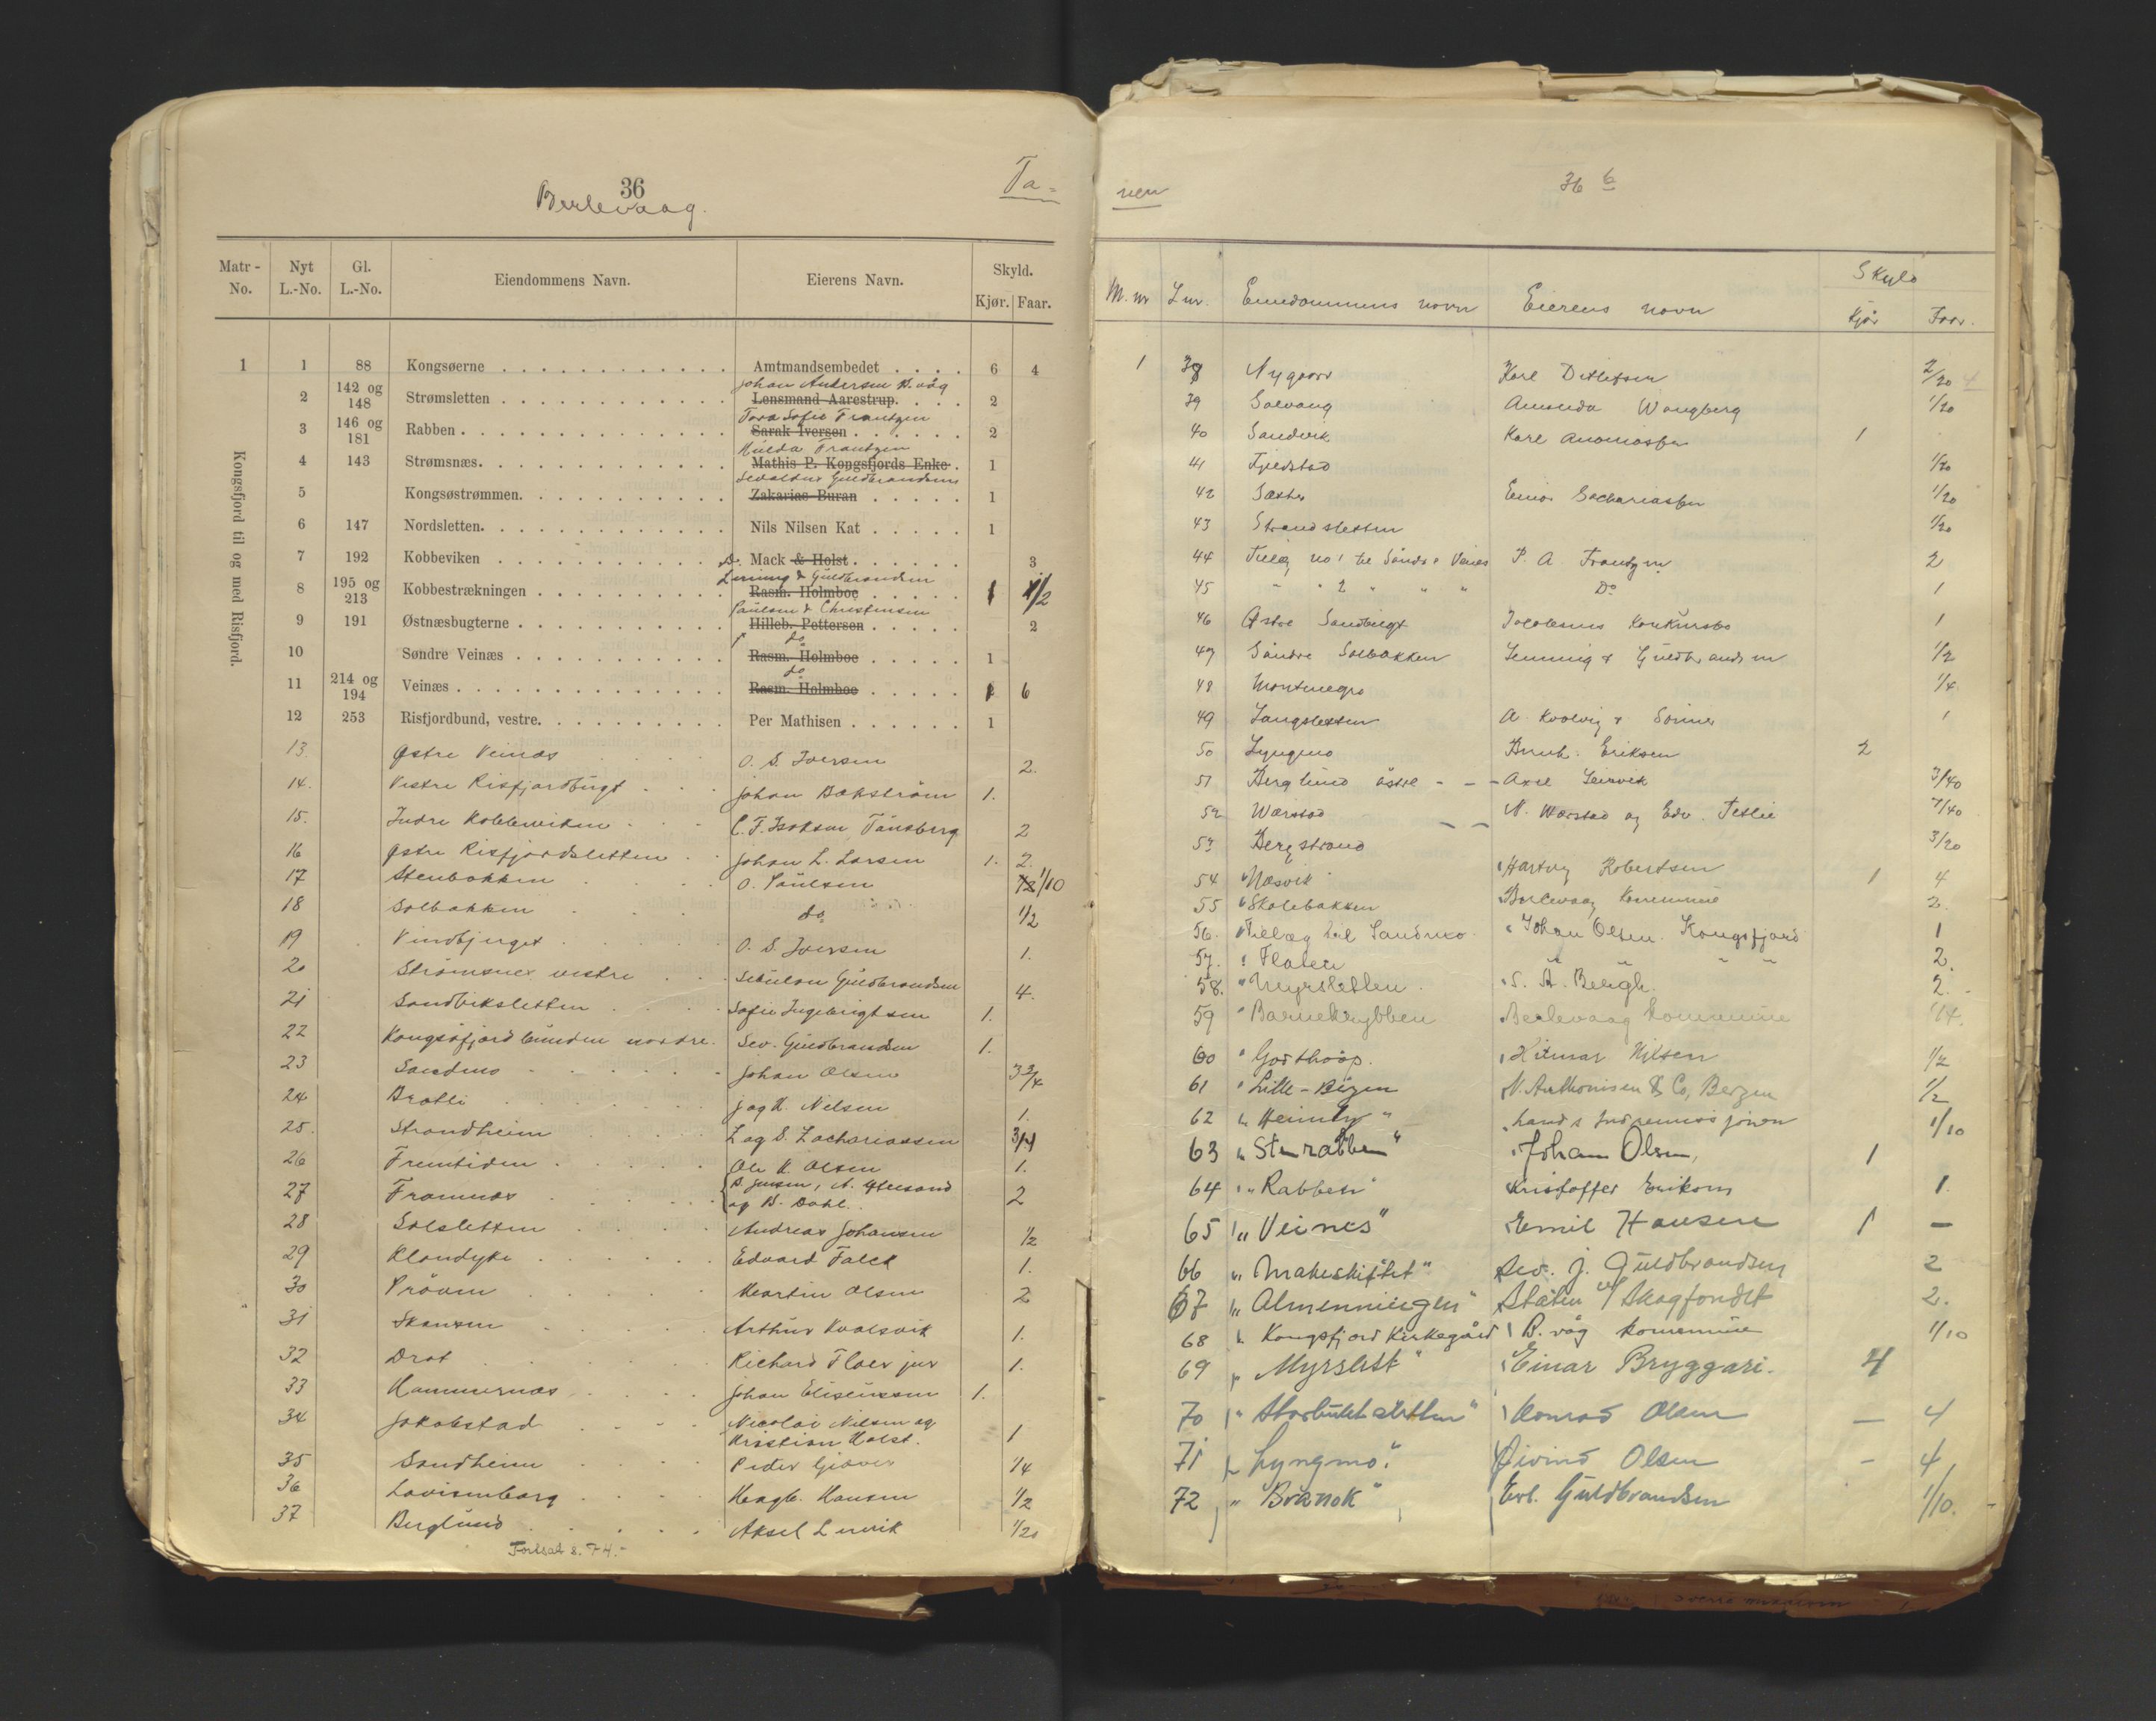 36
Berlevaag.
Ta-
Matr-No. Nyt L.-No. Gl. L.-No. Eiendommens Navn. Eierens Navn. Skyld. Kjør. Faar.
Kongsfjord til og med Risfjord.
1 1 88 Kongsøerne Amtmandsembedet 6 4
Johan Andersen B.våg
2 142 og 148 Strømsletten Lensmand Aarestrup. 2
Tora Sofie Frantzen
3 146 og 181 Rabben Sarak Iversen 2
Hulda Frantzen
4 143 Strømsnæs Mathis P. Kongsfjords Enke 1
Guldbrandsens
5 Kongsøstrømmen Zakarias Buran 1
6 147 Nordsletten Nils Nilsen Kat 1
7 192 Kobbeviken D. Mack & Holst 3
& Guldbrandsen
8 195 og 213 Kobbestrækningen Rasm. Holmboe 1 1/2
Paulsen & Christensen
9 191 Østnæsbugterne Hilleb. Pettersen 2
do
10 Søndre Veinæs Rasm. Holmboe 1
do
11 214 og 194 Veinæs Rasm. Holmboe 1 6
12 253 Risfjordbund, vestre. Per Mathisen 1
13. Østre Veinæs O. S. Iversen 2.
14. Vestre Risfjordbugt Johan Bakstrøm 1.
15. Indre Kobbeviken C. F. Isaksen Tånsberg 2
16 Østre Risfjordsletten Johan L. Larsen 1. 2.
17 Stenbakken O. Paulsen 1/2 1/10
18 Solbakken do 1/2
19 Vindbjerget O. S. Iversen 1.
20 Strømsnes vestre Guldbrandsen 4.
21 Sandviksletten Sofie Ingebrigtsen 1.
22 Kongsøfjordbunden nordre. Sev. Guldbrandsen 1.
23 Sandmo Johan Olsen 3 3/4
24 Bratli Jag H. Nilsen 1.
25. Strandheim Zag S. Zachariassen 3/4
26 Fremtiden Ole K. Olsen 1.
27 Framnæs B. Jensen, A.
og B. Dahl. 2
28 Solsletten Andreas Johansen 1/2
29 Klondyke Edvard Falck 1.
30 Prøven Martin Olsen 2
31 Skansen Arthur Kvalsvik 1.
32 Drot Richard Floer jur 1.
33 Hammernæs Johan Eliseussen 1.
34 Jakobstad Nicolai Nilsen og
Kristian Holst. 1
35 Sandheim Peder Giæver 1/4
36 Lovisenborg Hagb. Hansen 1/2
37 Berglund Aksel Lervik 1/20
Fortsat s. 74.-
nen
36 b
M. nr L nr. Eiendommens navn Eierens navn Skyld Kjør Faar.
1 38 Nygaard Karl Ditlefsen 2/20
39 Solvang Amanda Wangberg 1/20
40 Sandvik Karl Ananiassen 1
41 Fjeldstad 1/20
42 Sæther Einar Sachariassen 1/20
43 Strandsletten 1/20
44 Tillæg no 1 til Søndre Veines P. A. Frantzen 2
45 " " 2 " " " Do 1
46 Østre Sandbugt Konkursbo 1
47 Søndre Solbakken & Guldbrandsen 1/2
48 Montenegro 1/4
49 Langsletten A. Kvalvig & Sønner 1
50 Lyngmo Bernh. Eriksen 2
51 Berglund østre - - - Axel Leirvik 3/40
52 Wærstad N. Wærstad og Edv. Teslie 7/40
53 Bergstrand 3/20
54 " Næsvik Hartvig Robertsen 1 4
55 " Skolebakken Berlevaag Kommune 2.
56. " Tillæg til Sandmo Johan Olsen. Kongsfjord 1
57. " Flaten " " " 2.
58. " Myrsletten S. A. Bergh. 2.
59 " Barnekrybben Berlevaag kommune 1/4.
60 " Godthaap. Hilmar Nilsen 1/2
61 " Lille-Bizen N. Anthonisen & Co, Bergen 1/2
62 " Heimly " lands Indremisjonen 1/10
63 " Sturabben " Johan Olsen, 1
64 " Rabben " Kristoffer Eriksen 1.
65 " Veines " Emil Hansen 1 —
66 " Makeskiftet " Sev. J. Guldbrandsen 2
67 " Almenningen " Staten v/ Skogfondet 2.
68 " Kongsfjord Kirkegård B. våg kommune 1/10
69 " Myrslett " Einar Bryggari. 4
70 " " Konrad Olsen — 4
71 " Lyngmo " Øivind Olsen - 4
72 " Bränok " Guldbrandsen 1/10.